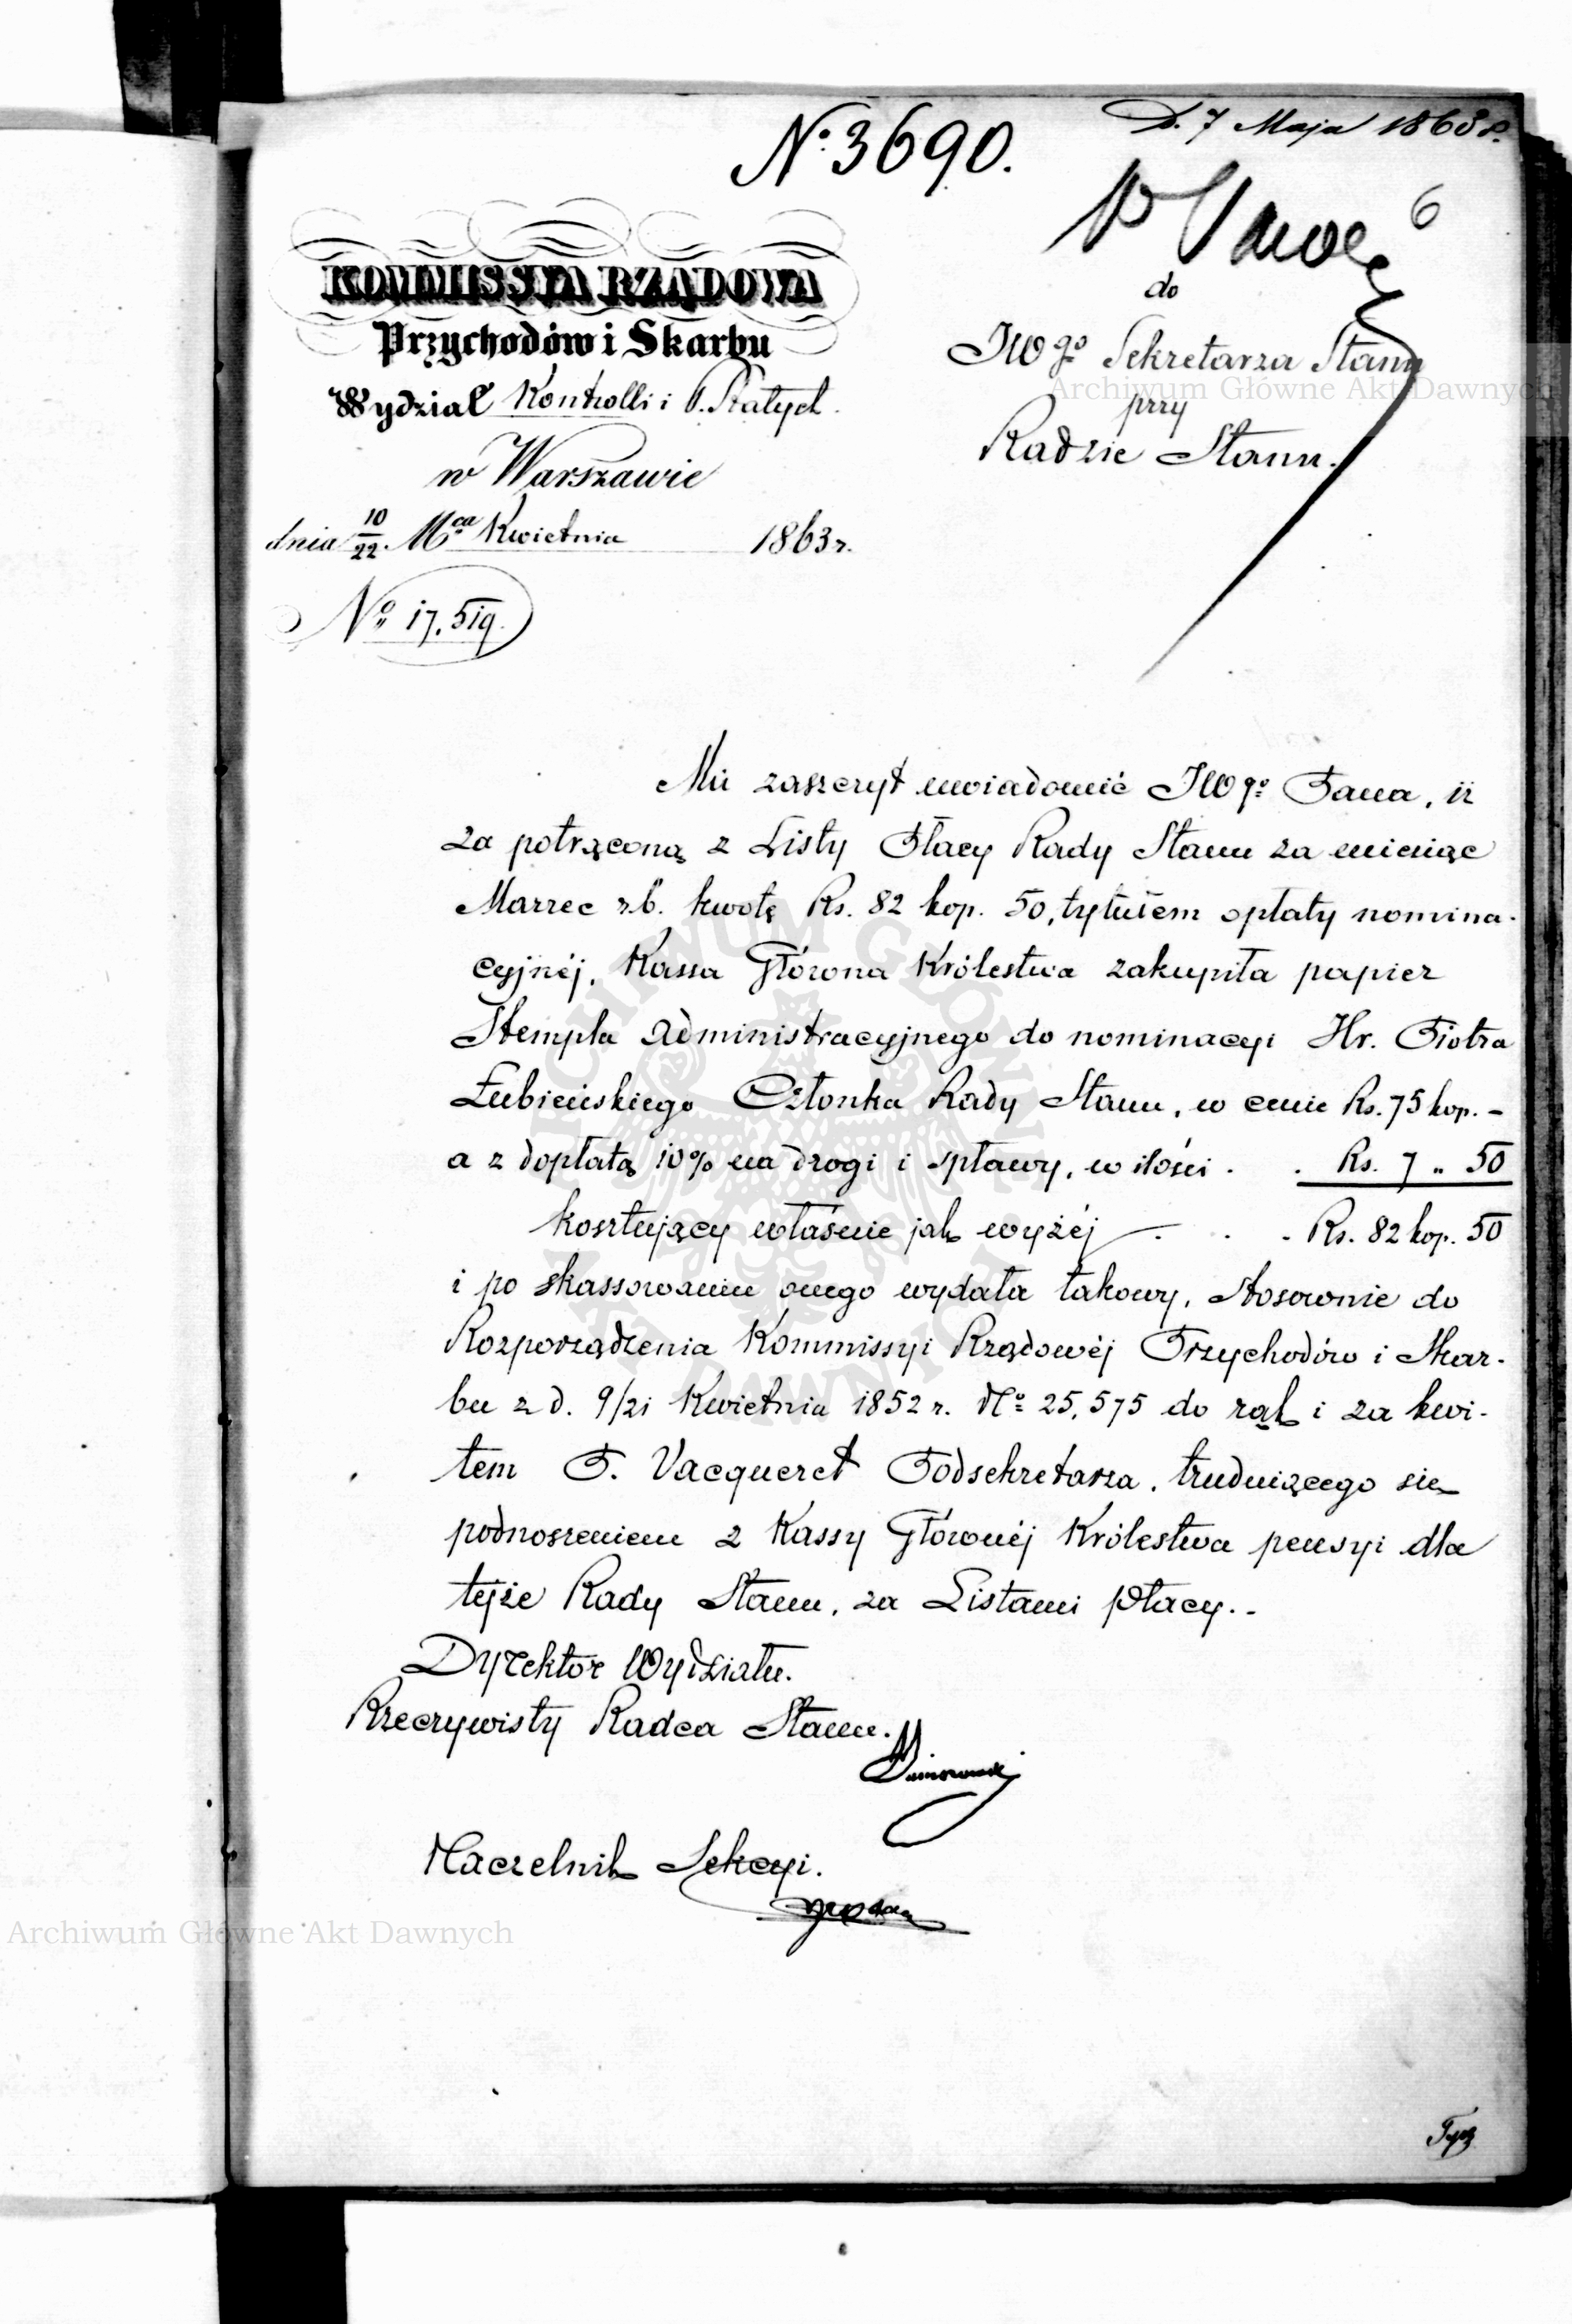 D. 7 Maja 1863 r.
N° 3690.
6
KOMMISSYA RZĄDOWA
Przychodów i Skarbu
Wydział Kontrolli i P. Stałych.
w Warszawie
dnia 10/22 Mca Kwietnia 1863 r.
N° 17,519.
do
JWgo Sekretarza Stanu
przy
Radzie Stanu.
Ma zaszczyt uwiadomić JWgo Pana, iż
za potrąconą z Listy Płacy Rady Stanu za miesiąc
Marzec r.b. kwotę Rs. 82 kop. 50, tytułem opłaty nomina-
cyjnéj, Kassa Główna Królestwa zakupiła papier
Stempla Administracyjnego do nominacyi Hr. Piotra
Łubieńskiego Członka Rady Stanu, w cenie Rs. 75 kop. -
a z dopłatą 10% na drogi i spławy, w ilości . . Rs. 7 " 50
kosztujący właśnie jak wyżéj — . . . Rs. 82 kop. 50
i po skassowaniu onego wydała takowy, stosownie do
Rozporządzenia Kommissyi Rządowéj Przychodów i Skar-
bu z d. 9/21 Kwietnia 1852 r. N° 25,575 do rąk i za kwi-
tem P. Vacqueret Podsekretarza, trudniącego się
podnoszeniem z Kassy Głównéj Królestwa pensyi dla
tejże Rady Stanu, za Listami płacy. -
Dyrektor Wydziału.
Rzeczywisty Radca Stanu.
Naczelnik Sekcyi.
Archiwum Główne Akt Dawnych
Archiwum Główne Akt Dawnych
ARCHIWUM GŁÓWNE AKT DAWNYCH